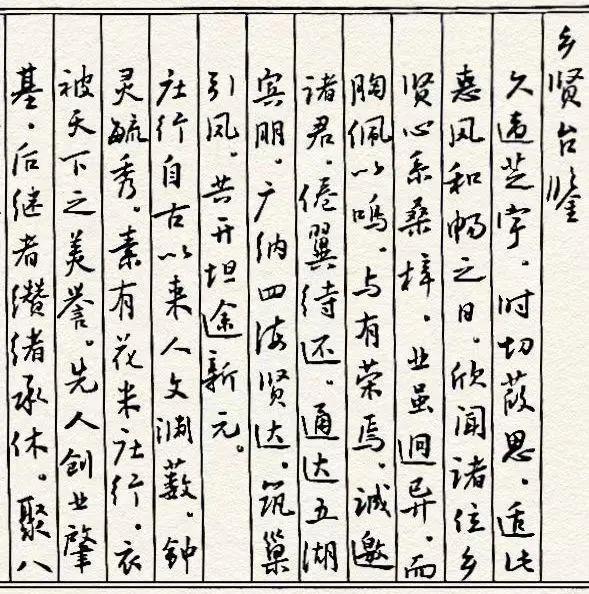 乡贤台鉴
久违芝宇，时切葭思，适此
惠风和畅之日，欣闻诸位乡
贤心系桑梓，业虽迥异，而
胸佩以鸣，与有荣焉，诚邀
诸君，倦翼待还。通达五湖
宾朋，广纳四海贤达，筑巢
引凤，共开坦途新元。
庄行自古以来人文渊薮，钟
灵毓秀。素有花米庄行，衣
被天下之美誉。先人创业肇
基，后继者缵绪承休。聚八